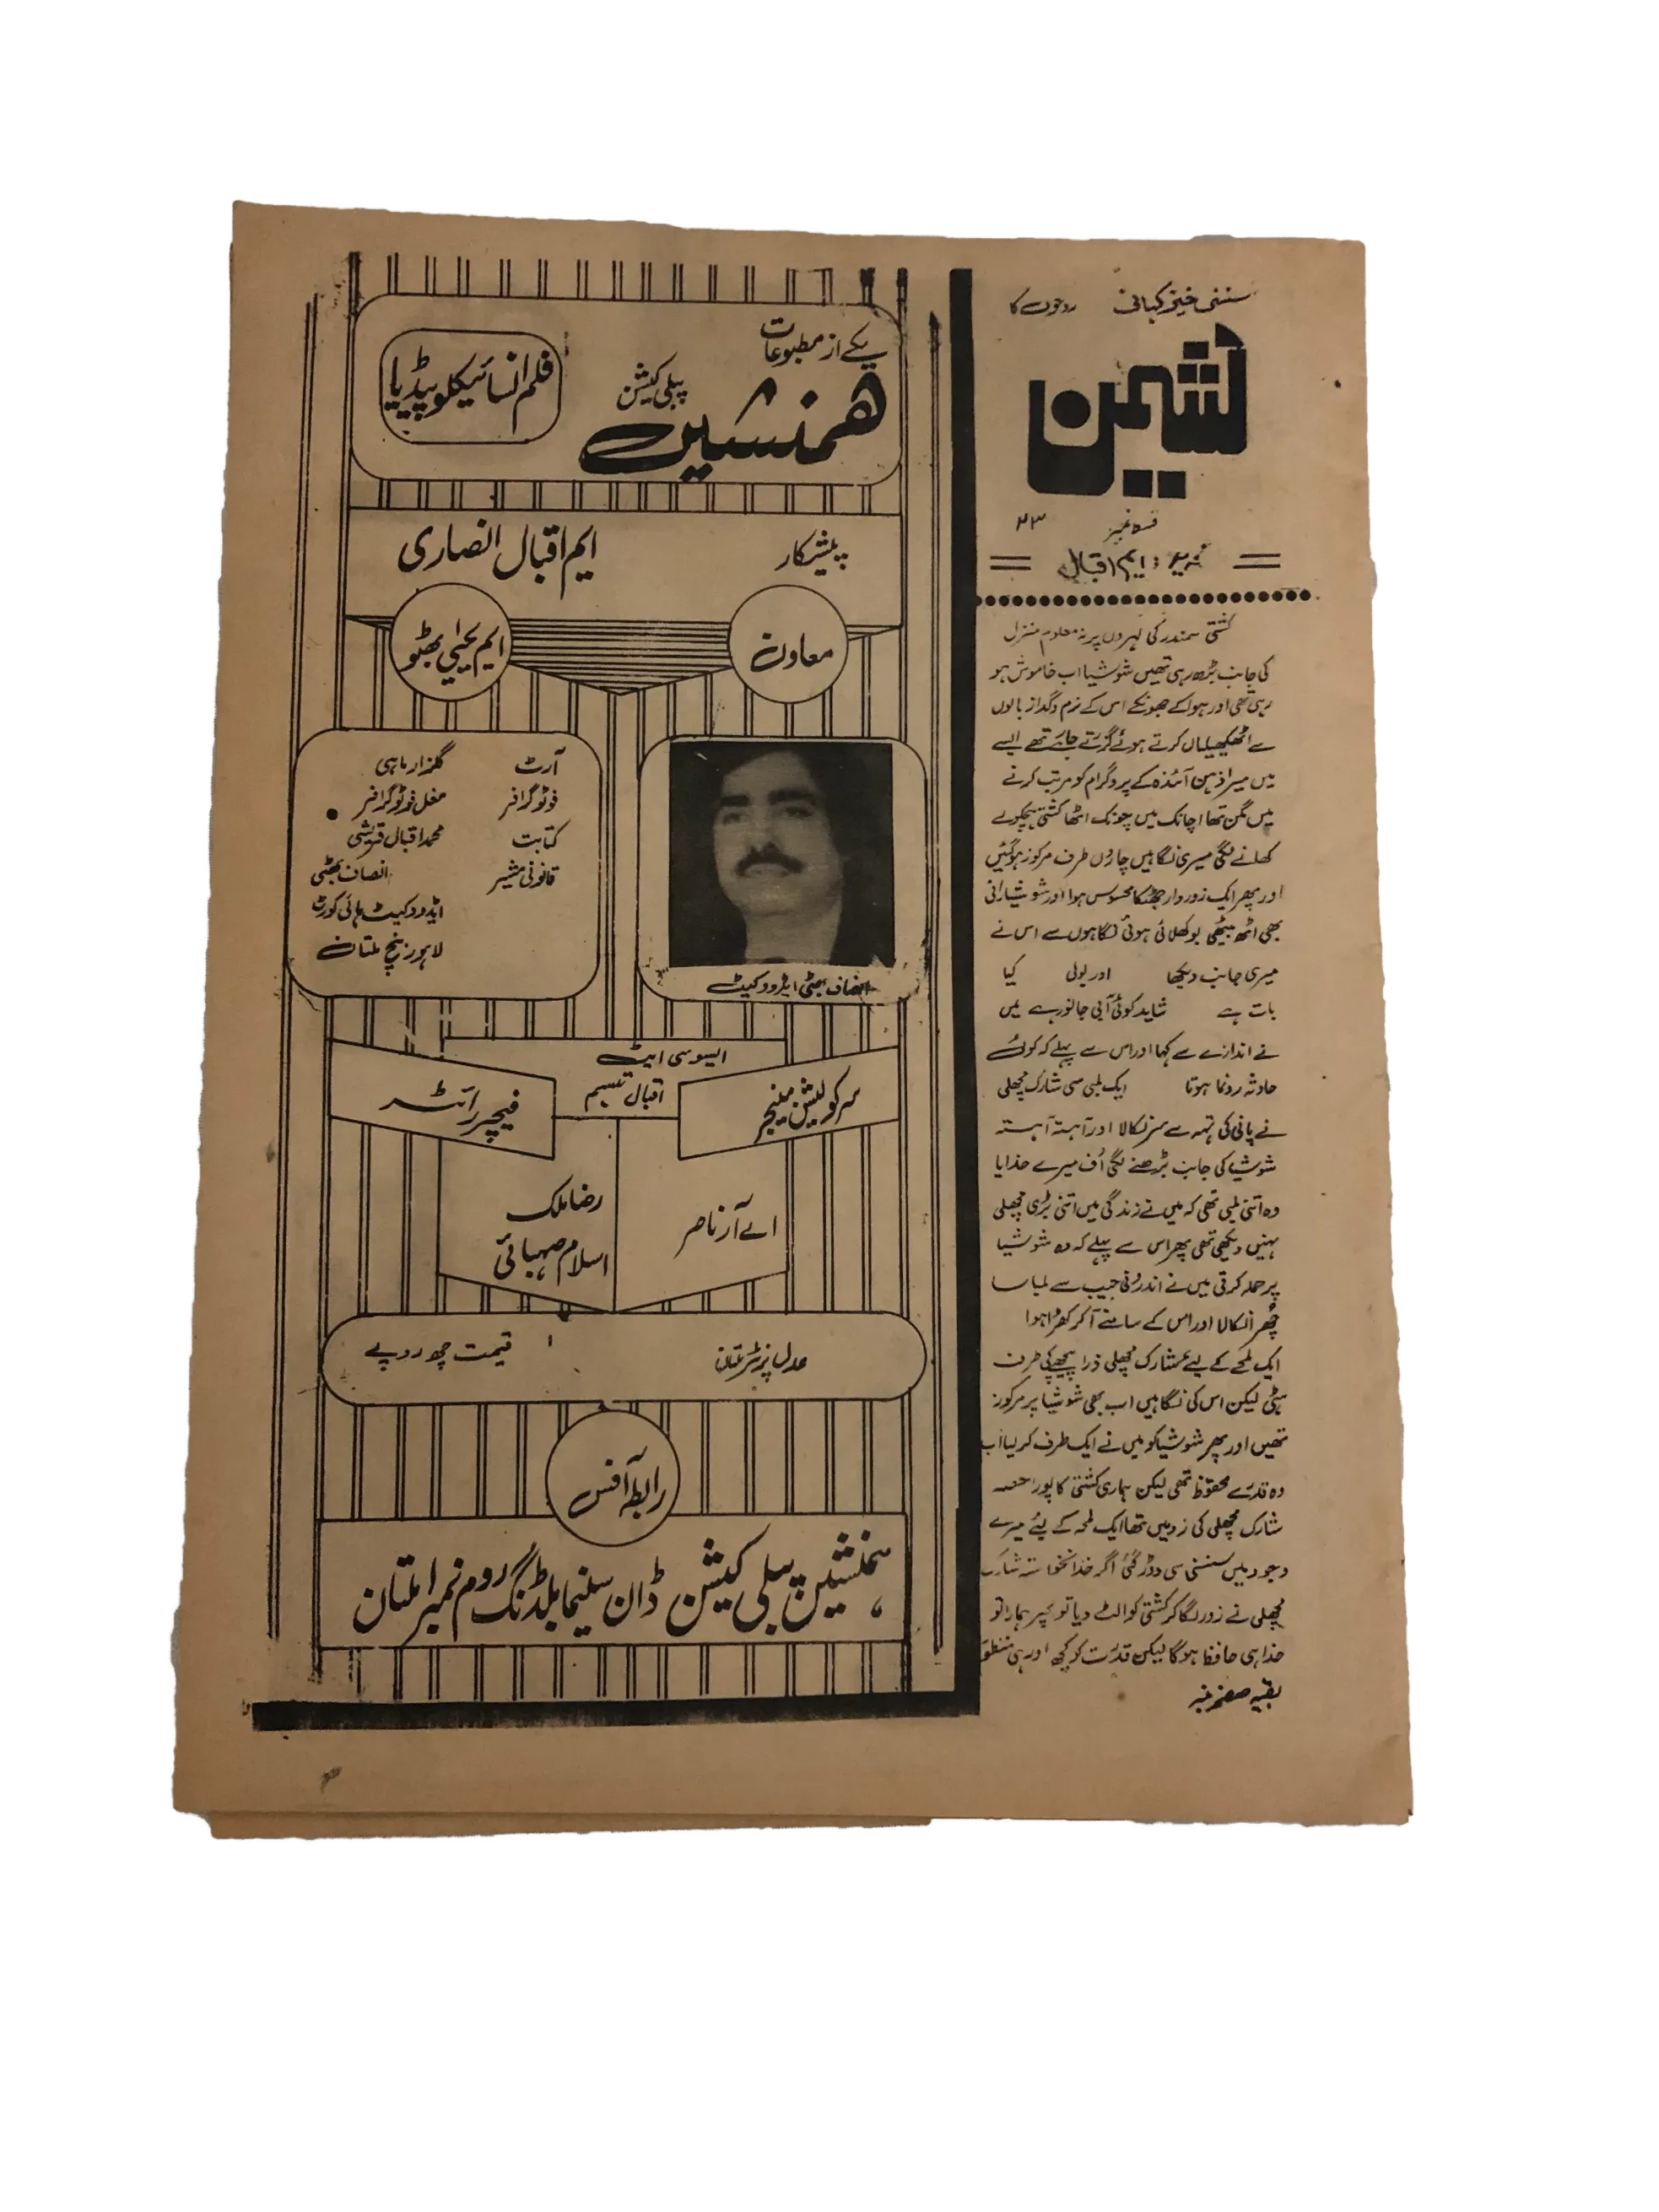 سنسنی خیز کہانی روحوں کا
نشیمن
قسط نمبر ۲۳
تحریر: ایم اقبال
کشتی سمندر کی لہروں پر نہ معلوم منزل
کی جانب بڑھ رہی تھیں شوشیا اب خاموش ہو
رہی تھی اور ہوا کے جھونکے اس کے نرم و گداز بالوں
سے اٹھکھیلیاں کرتے ہوئے گزرتے جا رہے تھے ایسے
میں میرا ذہن آئندہ کے پروگرام کو مرتب کرنے
میں مگن تھا اچانک میں چونک اٹھا کشتی ہچکولے
کھانے لگی میری نگاہیں چاروں طرف مرکوز ہوگئیں
اور پھر ایک زوردار جھٹکا محسوس ہوا اور شوشیا رانی
بھی اٹھ بیٹھی بوکھلائی ہوئی نگاہوں سے اس نے
میری جانب دیکھا اور بولی کیا
بات ہے شاید کوئی آبی جانور ہے میں
نے اندازے سے کہا اور اس سے پہلے کہ کوئی
حادثہ رونما ہوتا ایک لمبی سی شارک مچھلی
نے پانی کی تہہ سے سر نکالا اور آہستہ آہستہ
شوشیا کی جانب بڑھنے لگی اُف میرے خدایا
وہ اتنی لمبی تھی کہ میں نے زندگی میں اتنی بڑی مچھلی
نہیں دیکھی تھی پھر اس سے پہلے کہ وہ شوشیا
پر حملہ کرتی میں نے اندرونی جیب سے لمبا سا
چھرا نکالا اور اس کے سامنے آکر کھڑا ہوا
ایک لمحے کے لیے شارک مچھلی ذرا پیچھے کی طرف
ہٹی لیکن اس کی نگاہیں اب بھی شوشیا پر مرکوز
تھیں اور پھر شوشیا کو میں نے ایک طرف کر لیا اب
وہ قدرے محفوظ تھی لیکن ہماری کشتی کا پورا حصہ
شارک مچھلی کی زد میں تھا ایک لمحہ کے لئے میرے
وجود میں سنسنی سی دوڑ گئی اگر خدانخواستہ شارک
مچھلی نے زور لگا کر کشتی کو الٹ دیا تو پھر ہمارا تو
خدا ہی حافظ ہوگا لیکن قدرت کو کچھ اور ہی منظور
بقیہ صفحہ نمبر
یکے از مطبوعات
ھمنشین پبلی کیشن
فلم انسائیکلوپیڈیا
پیشکار ایم اقبال انصاری
معاون ایم یحیٰی بھٹو
آرٹ گلزار ماہی
فوٹو گرافر مغل فوٹو گرافر
کتابت محمد اقبال قریشی
قانونی مشیر انصاف بھٹی
ایڈووکیٹ ہائی کورٹ
لاہور بنچ ملتان
انصاف بھٹی ایڈووکیٹ
ایسوسی ایٹ
اقبال تبسم
سرکولیشن مینجر
اے آر ناصر
فیچر رائٹر
رضا ملک
اسلام صہبائی
عدل پرنٹرز ملتان قیمت چھ روپے
رابطہ آفس
ہمنشین پبلی کیشن ڈان سنیما بلڈنگ روم نمبر ۱ ملتان